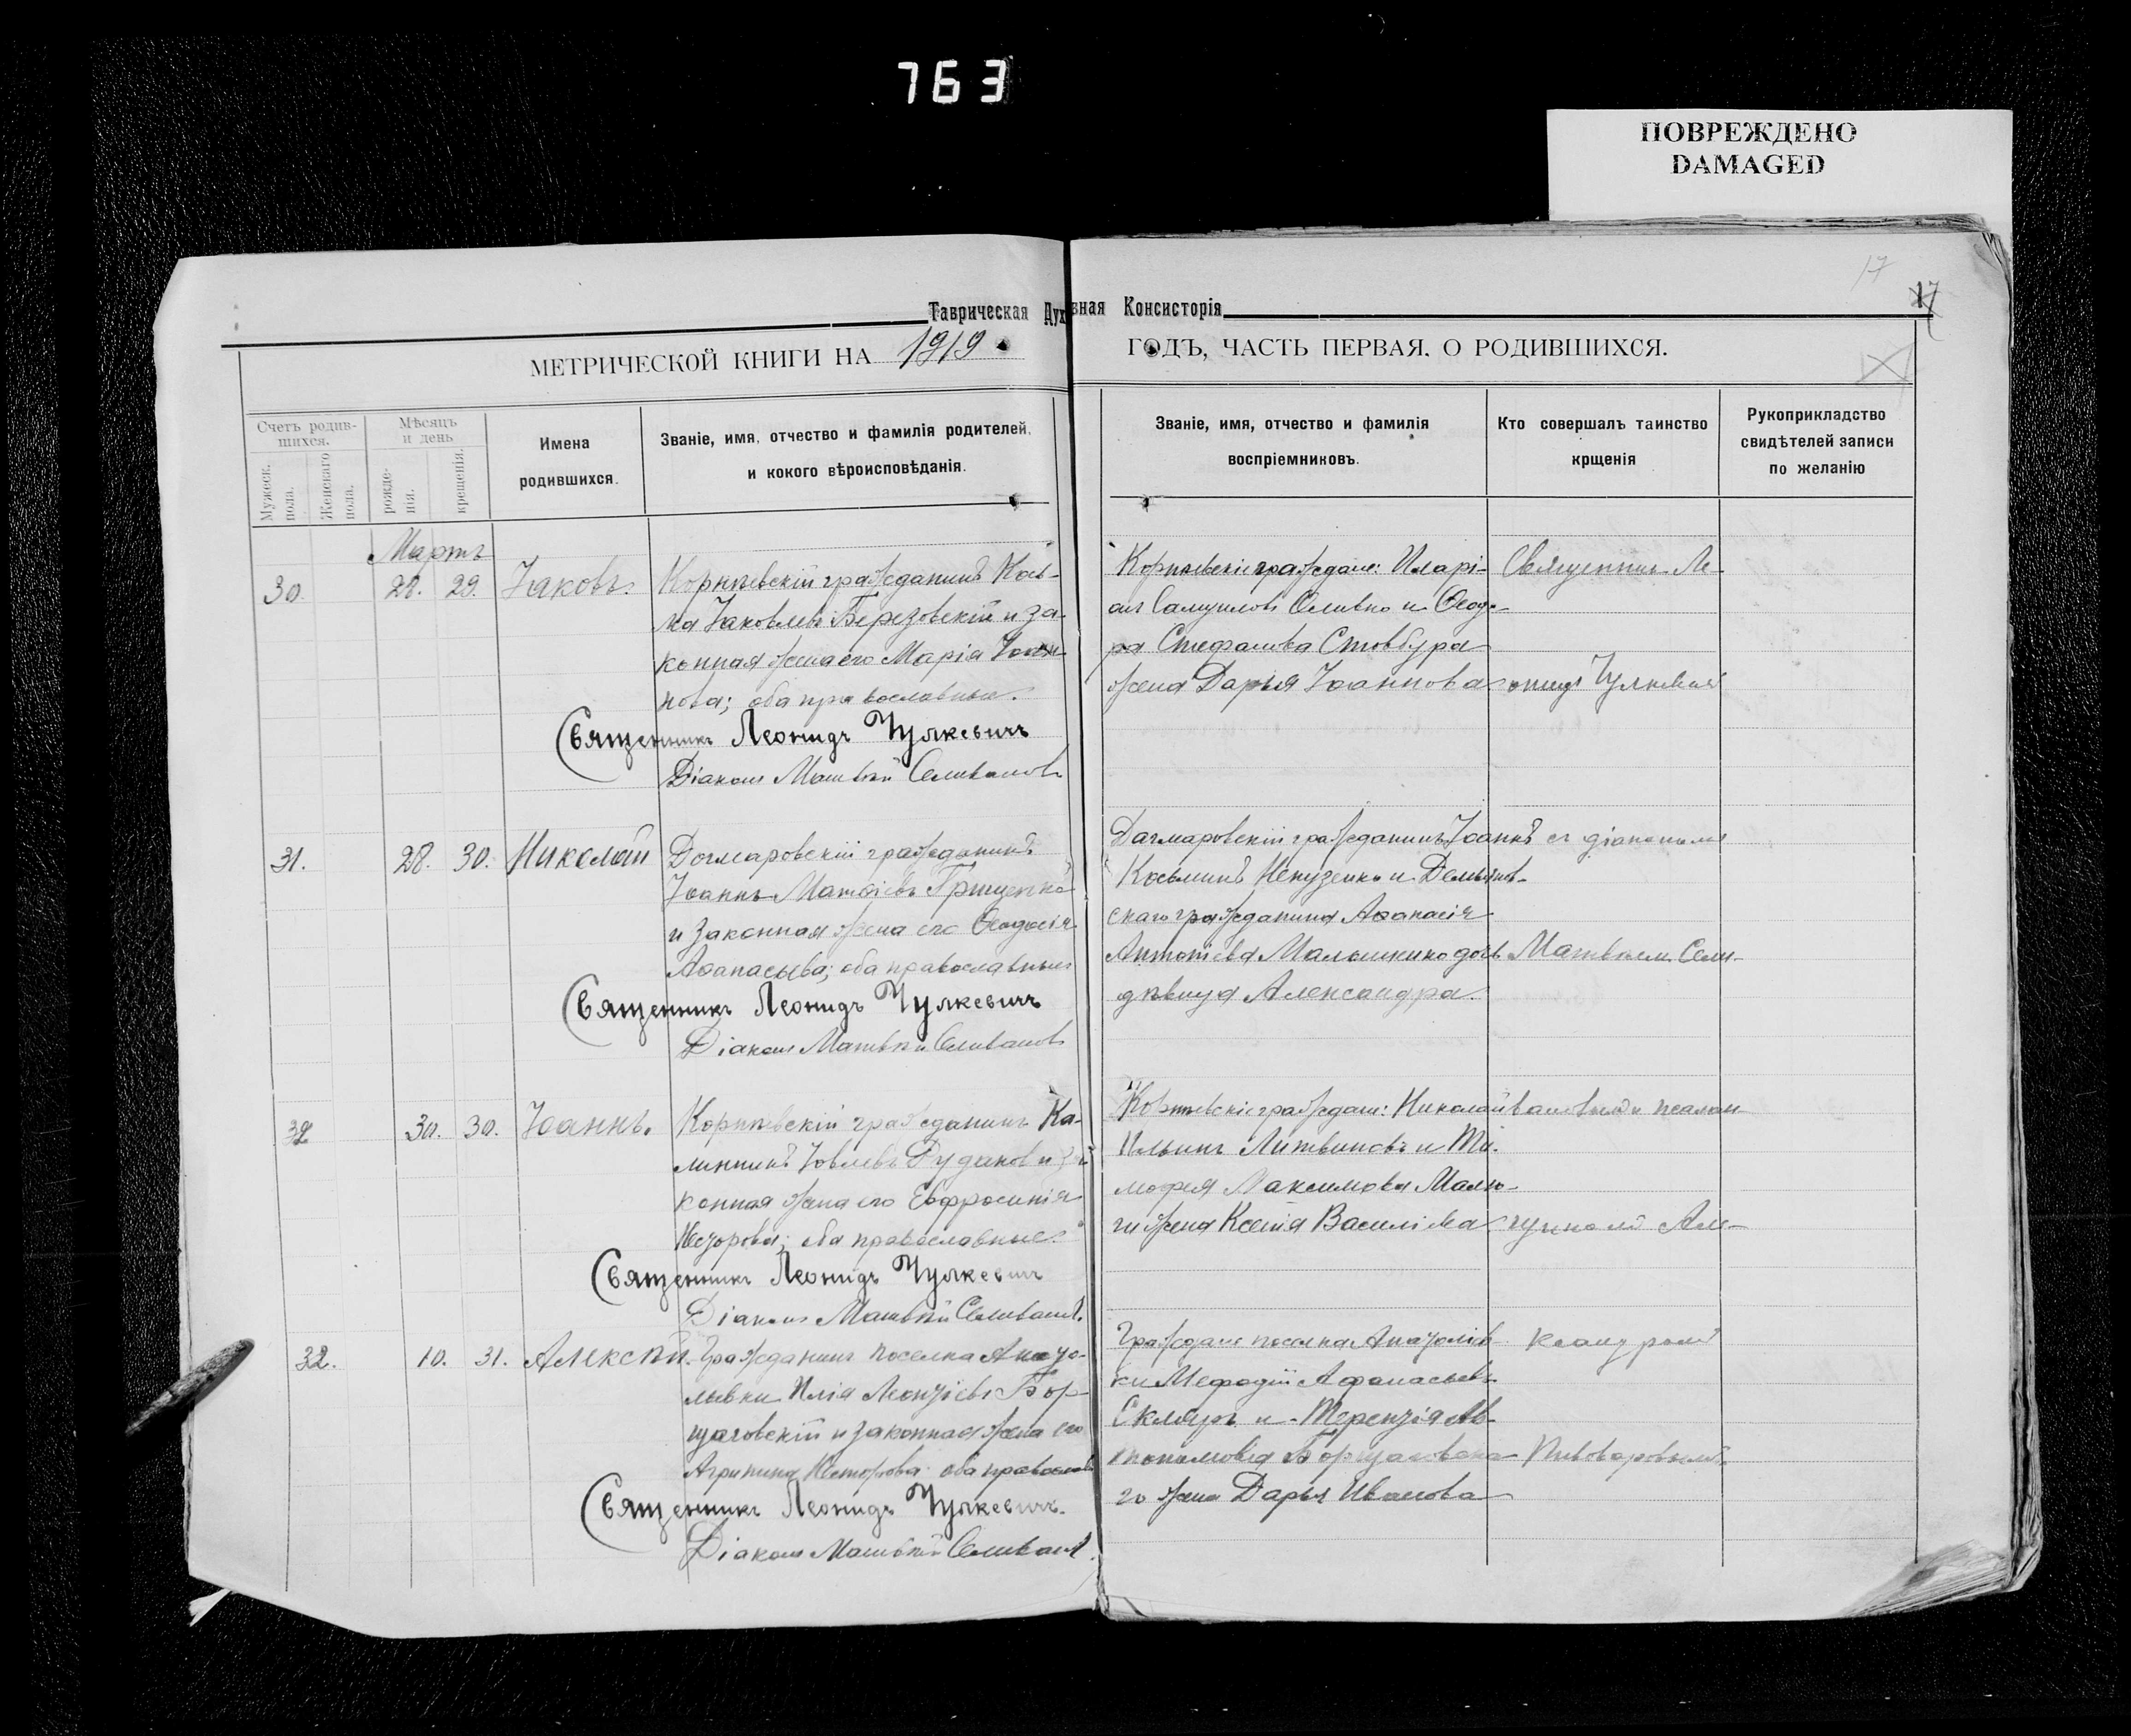 763
ПОВРЕЖДЕНО
DAMAGED
17
17
Таврическая Духовная Консисторія
МЕТРИЧЕСКОЙ КНИГИ НА 1919 ГОДЪ, ЧАСТЬ ПЕРВАЯ, О РОДИВШИХСЯ.
Счетъ родив-
шихся.
Мужеск.
пола.
Женскаго
пола.
Мѣсяцъ
и день
рожде-
нія.
крещенія.
Имена
родившихся.
Званіе, имя, отчество и фамилія родителей,
и кокого вѣроисповѣданія.
Званіе, имя, отчество и фамилія
воспріемниковъ.
Кто совершалъ таинство
крщенія
Рукоприкладство
свидѣтелей записи
по желанію
Мартъ
30. 28. 29. Іаковъ.
Корнѣевскій гражданинъ Кось-
ма Іаковлевъ Березовскій и за-
конная жена его Марія Іоан-
нова; оба православные.
Священникъ Леонидъ Чулкевичъ
Діаконъ Матвѣй Селивановъ
Корнѣевскіе граждане: Иларі-
онъ Самуиловъ Оливко и Ѳеодо-
ра Стефанова Стовбура
жена Дарья Іоаннова
Священникъ Ле-
онидъ Чулкевичъ
31. 28. 30. Николай
Догмаровскій гражданинъ
Іоаннъ Матѳіевъ Грищенко
и законная жена его Ѳеодосія
Аѳанасьева; оба православные
Священникъ Леонидъ Чулкевичъ
Діаконъ Матвѣй Селивановъ
Дагмаровскій гражданинъ Іоаннъ
Косьминъ и
скаго гражданина Аѳанасія
дочь
дѣвица Александра.
съ діакономъ
Матвѣемъ Сели-
32 30. 30. Іоаннъ.
Корнѣевскій гражданинъ Ка-
линникъ Іовлевъ Рудаков и за-
конная жена его Евфросинія
оба православные.
Священникъ Леонидъ Чулкевичъ
Діаконъ Матвѣй Селивановъ.
Корнѣевскіе граждане: Николай
Ильинъ Литвиновъ и Ти-
мофея Максимова Малю-
ги жена Ксенія Василіева
вановымъ и псалом-
щикомъ Але-
32. 10. 31. Алексѣй.
Гражданинъ поселка Анато-
льевки Илія Леонтіевъ Бор-
щаговскій и законная жена его
Агрипина Несторова; оба православ
Священникъ Леонидъ Чулкевичъ.
Діаконъ Матвѣй Селивановъ.
Граждане поселка Анатоліев-
ки Мефодій Афанасьевъ
Скляръ и Терентія Ав-
Борщаговска-
го жена Дарья Иванова
ксандромъ
Пивоваровымъ.